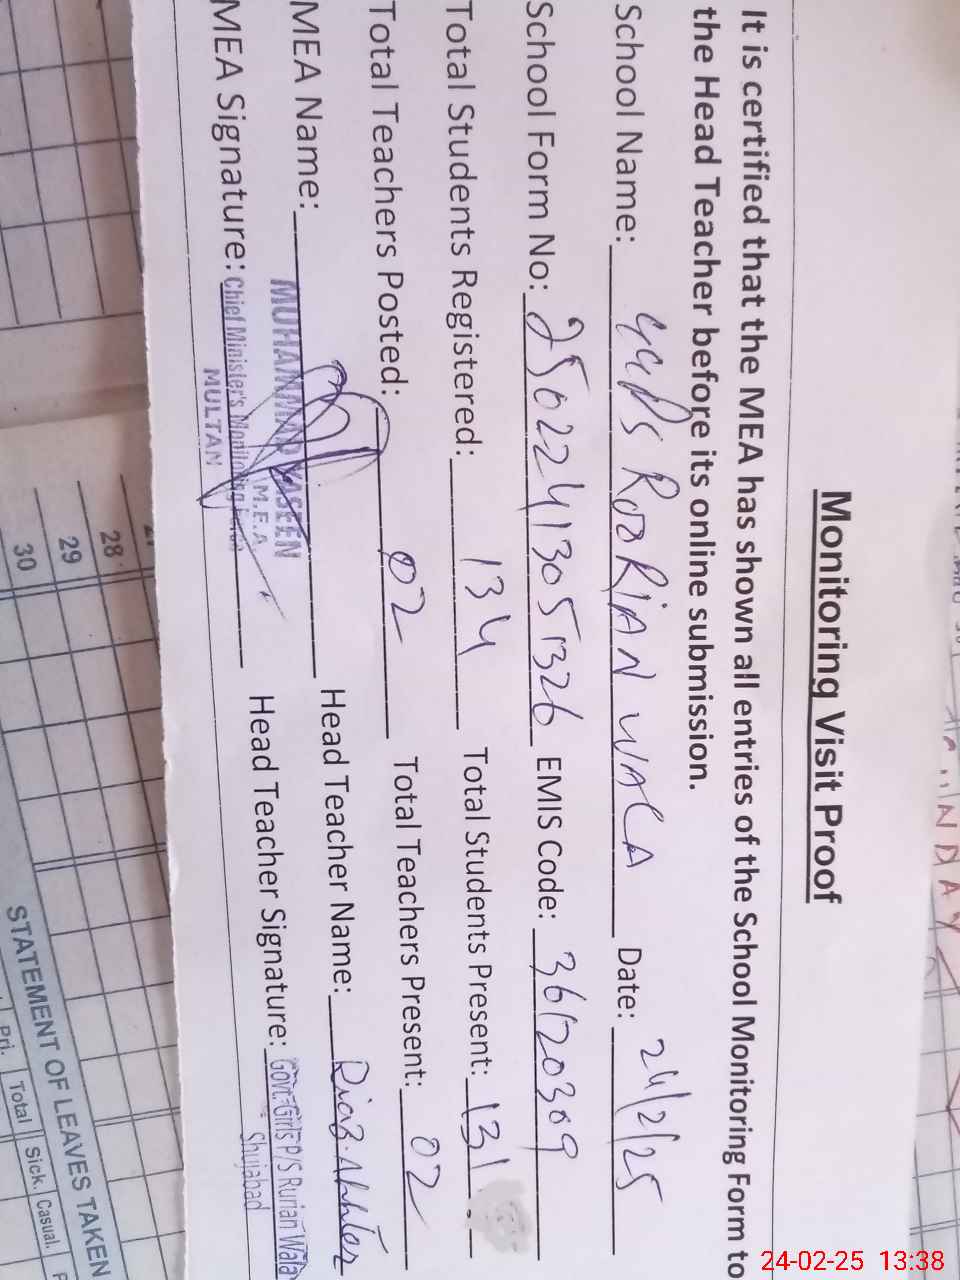 Monitoring Visit Proof
It is certified that the MEA has shown all entries of the School Monitoring Form to
the Head Teacher before its online submission.
School Name: GGPS RooRiAN WALA Date: 24/2/25
School Form No: 25022413051326 EMIS Code: 36120309
Total Students Registered: 134 Total Students Present: 131
Total Teachers Posted: 02 Total Teachers Present: 02
MEA Name: MUHAMMAD YASEEN Head Teacher Name: Riaz Akhter
M.E.A
MEA Signature: Chief Minister's Monitoring Force Head Teacher Signature: Govt: Girls P/S Rurian Wala
MULTAN Shujabad
28
29
30
STATEMENT OF LEAVES TAKEN
Pri. Total Sick. Casual.
24-02-25 13:38